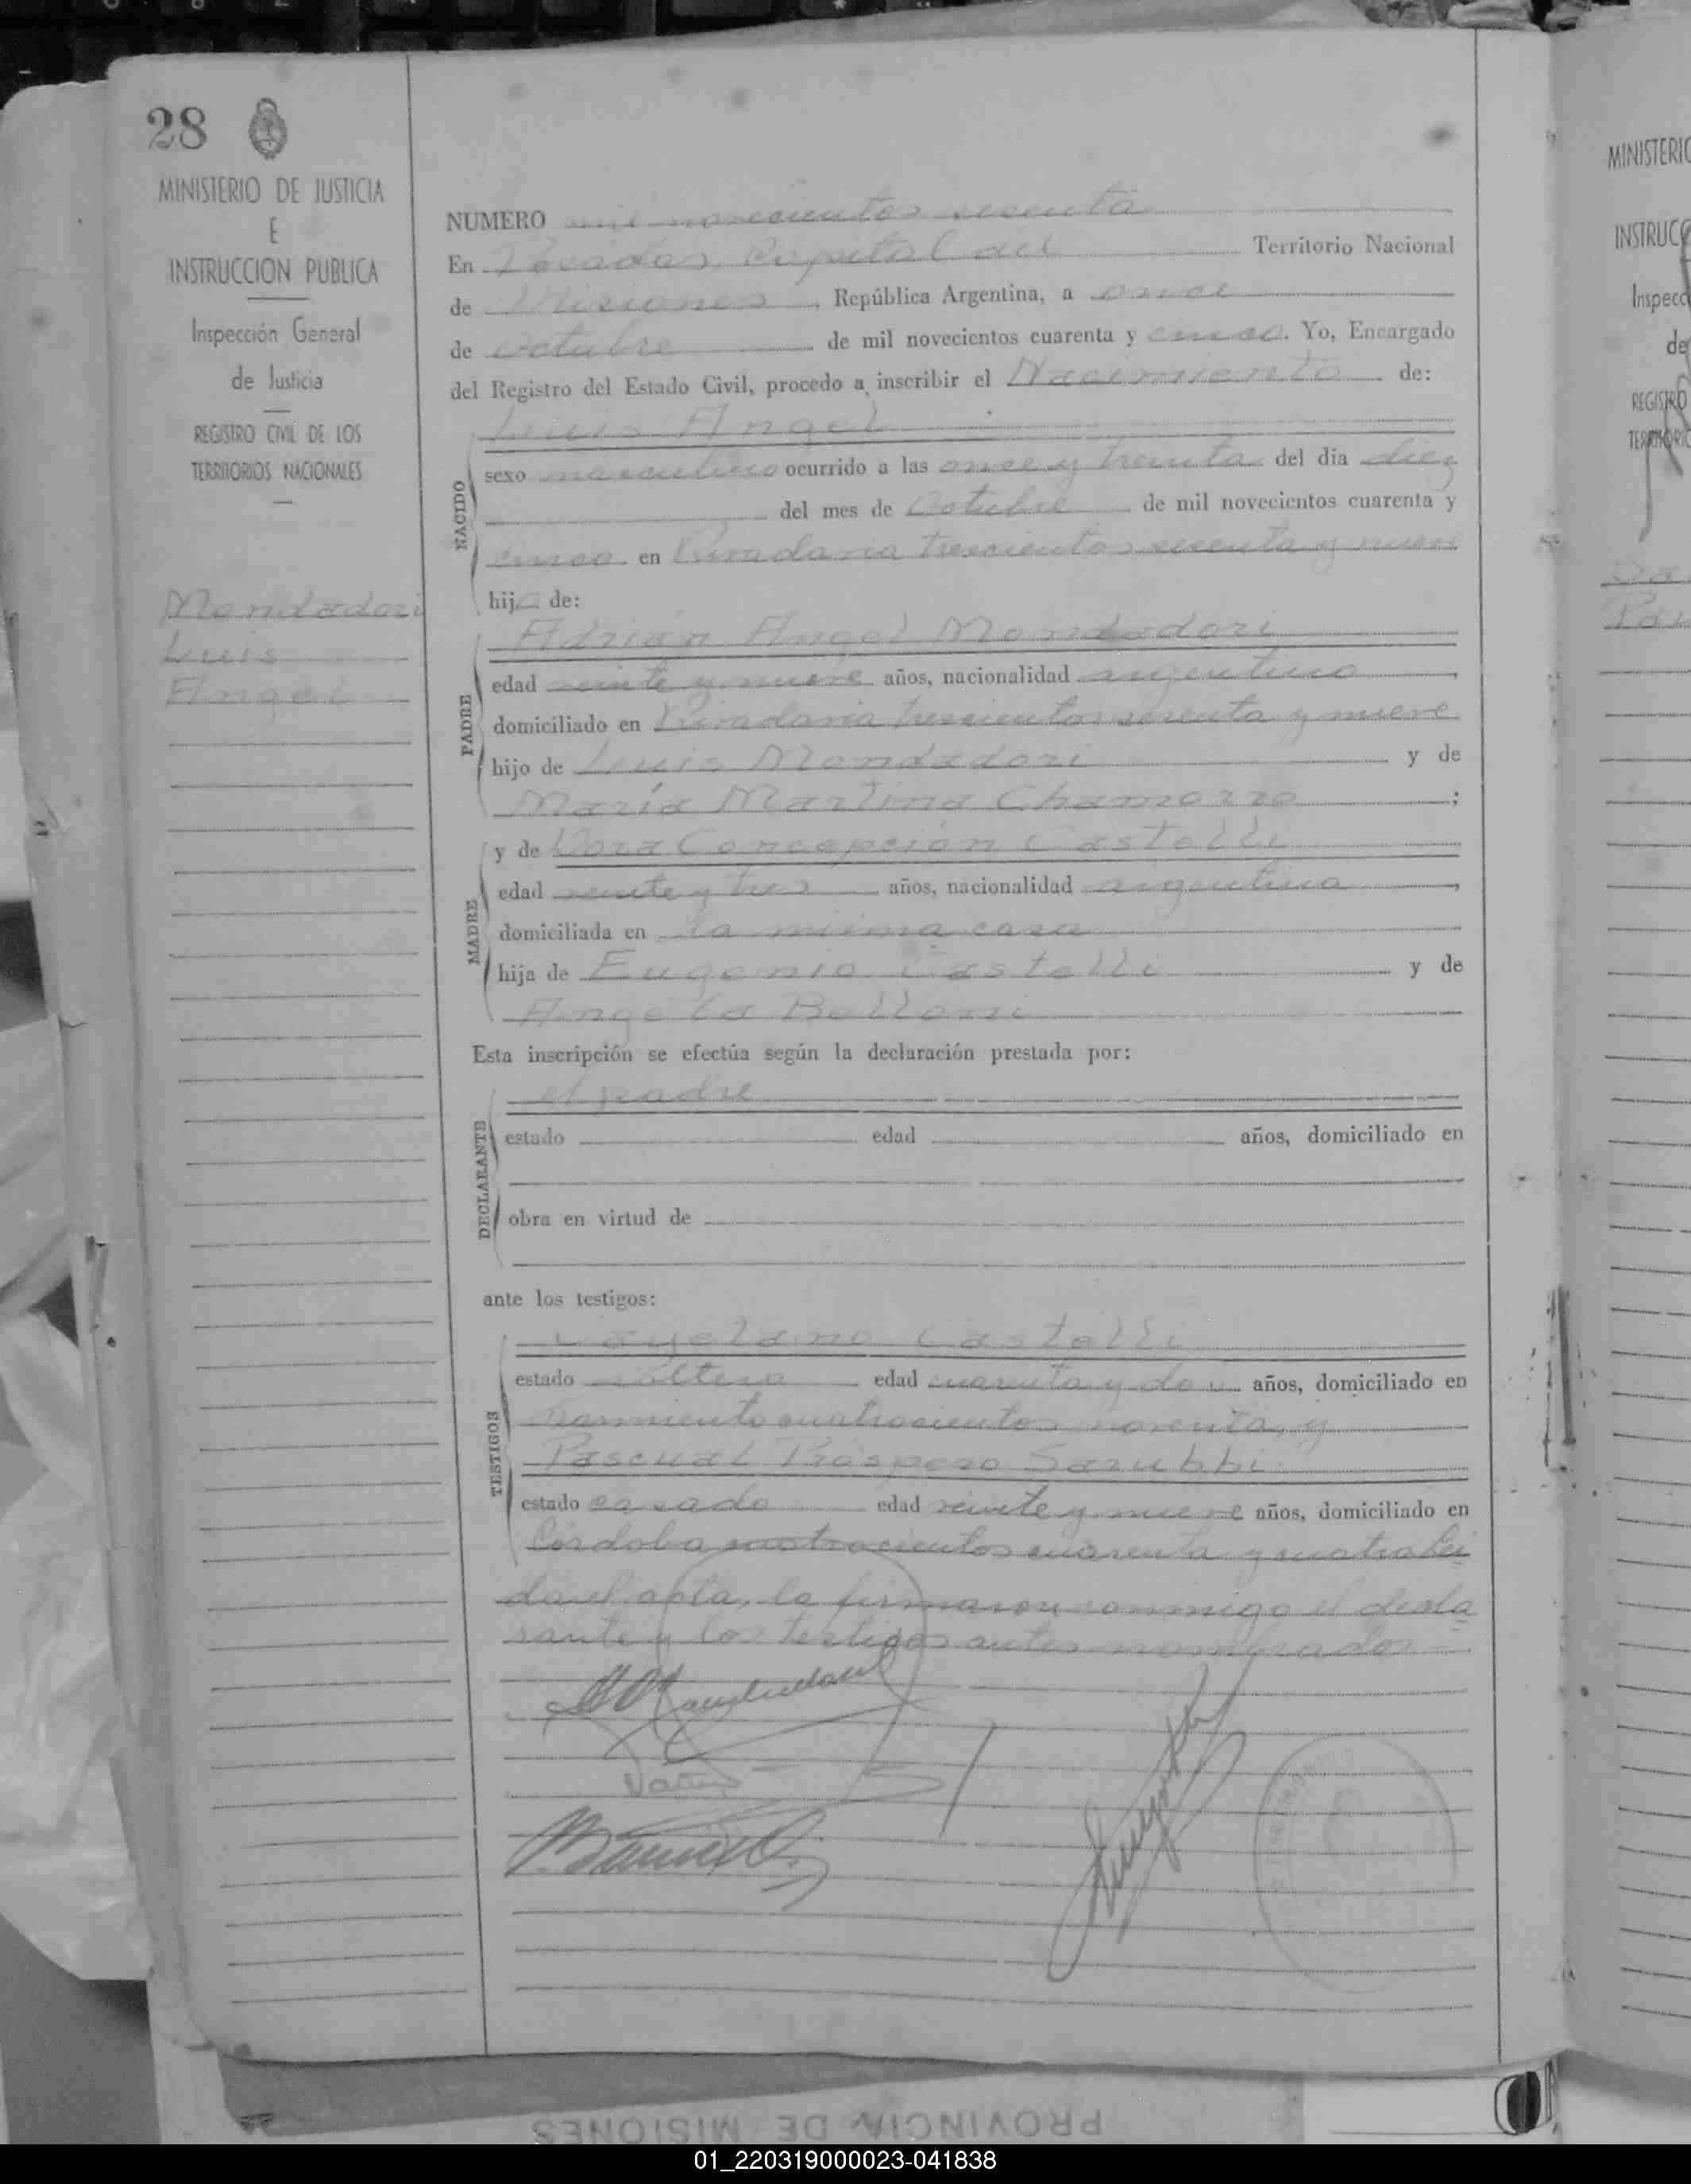 28
MINISTERIO DE JUSTICIA
E
INSTRUCCION PUBLICA
Inspección General
de Justicia
REGISTRO CIVIL DE LOS
TERRITORIOS NACIONALES
Mondadori
Luis
Angel
NUMERO mil novecientos sesenta
En Posadas, Capital del Territorio Nacional
de Misiones, República Argentina, a once
de octubre de mil novecientos cuarenta y cinco. Yo, Encargado
del Registro del Estado Civil, procedo a inscribir el Nacimiento de:
Luis Angel
NACIDO
sexo masculino ocurrido a las once y treinta del día diez
del mes de Octubre de mil novecientos cuarenta y
cinco en Rivadavia trescientos sesenta y nueve
hijo de:
Adrián Angel Mondadori
PADRE
edad veinte y nueve años, nacionalidad argentino
domiciliado en Rivadavia trescientos sesenta y nueve
hijo de Luis Mondadori y de
María Martina Chamorro;
y de Dora Concepción Castelli
MADRE
edad veinte y tres años, nacionalidad argentina
domiciliada en la misma casa
hija de Eugenio Castelli y de
Angela Belloni
Esta inscripción se efectúa según la declaración prestada por:
el padre
DECLARANTE
estado edad años, domiciliado en
obra en virtud de
ante los testigos:
Cayetano Castelli
TESTIGOS
estado soltero edad cuarenta y dos años, domiciliado en
Sarmiento cuatrocientos noventa, y
Pascual Próspero Sarubbi
estado casado edad veinte y nueve años, domiciliado en
Córdoba cuatrocientos cuarenta y cuatro. Leí
da el acta, la firmaron conmigo el decla
rante y los testigos antes nombrados.=
MINISTERIO
INSTRUCC
Inspecc
de
REGISTRO
TERRITORIO
PROVINCIA DE MISIONES
01_220319000023-041838